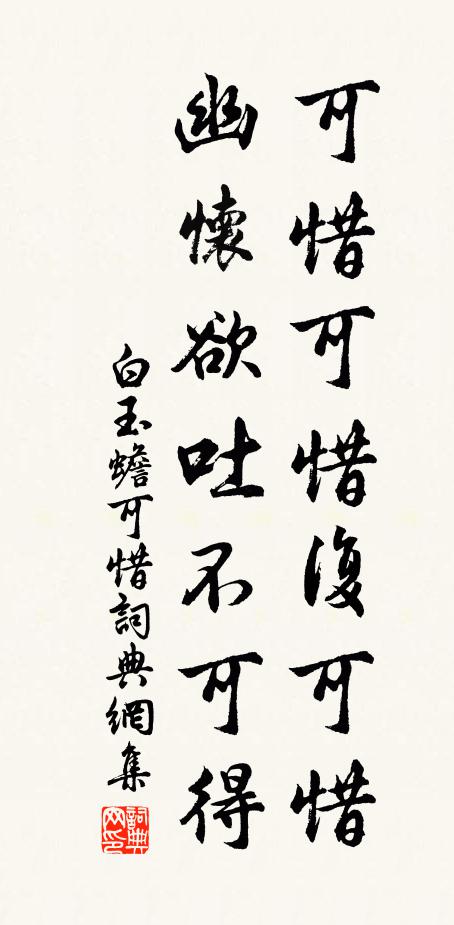 可惜可惜復可惜
幽懷欲吐不可得
白玉蟾可惜詞典網集
詞典
网印